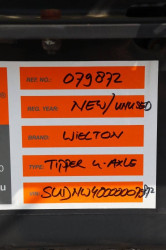 REF NO.: 079872
REG. YEAR: NEW/UNUSED
BRAND: WIELTON
TYPE: TIPPER 4-AXLE